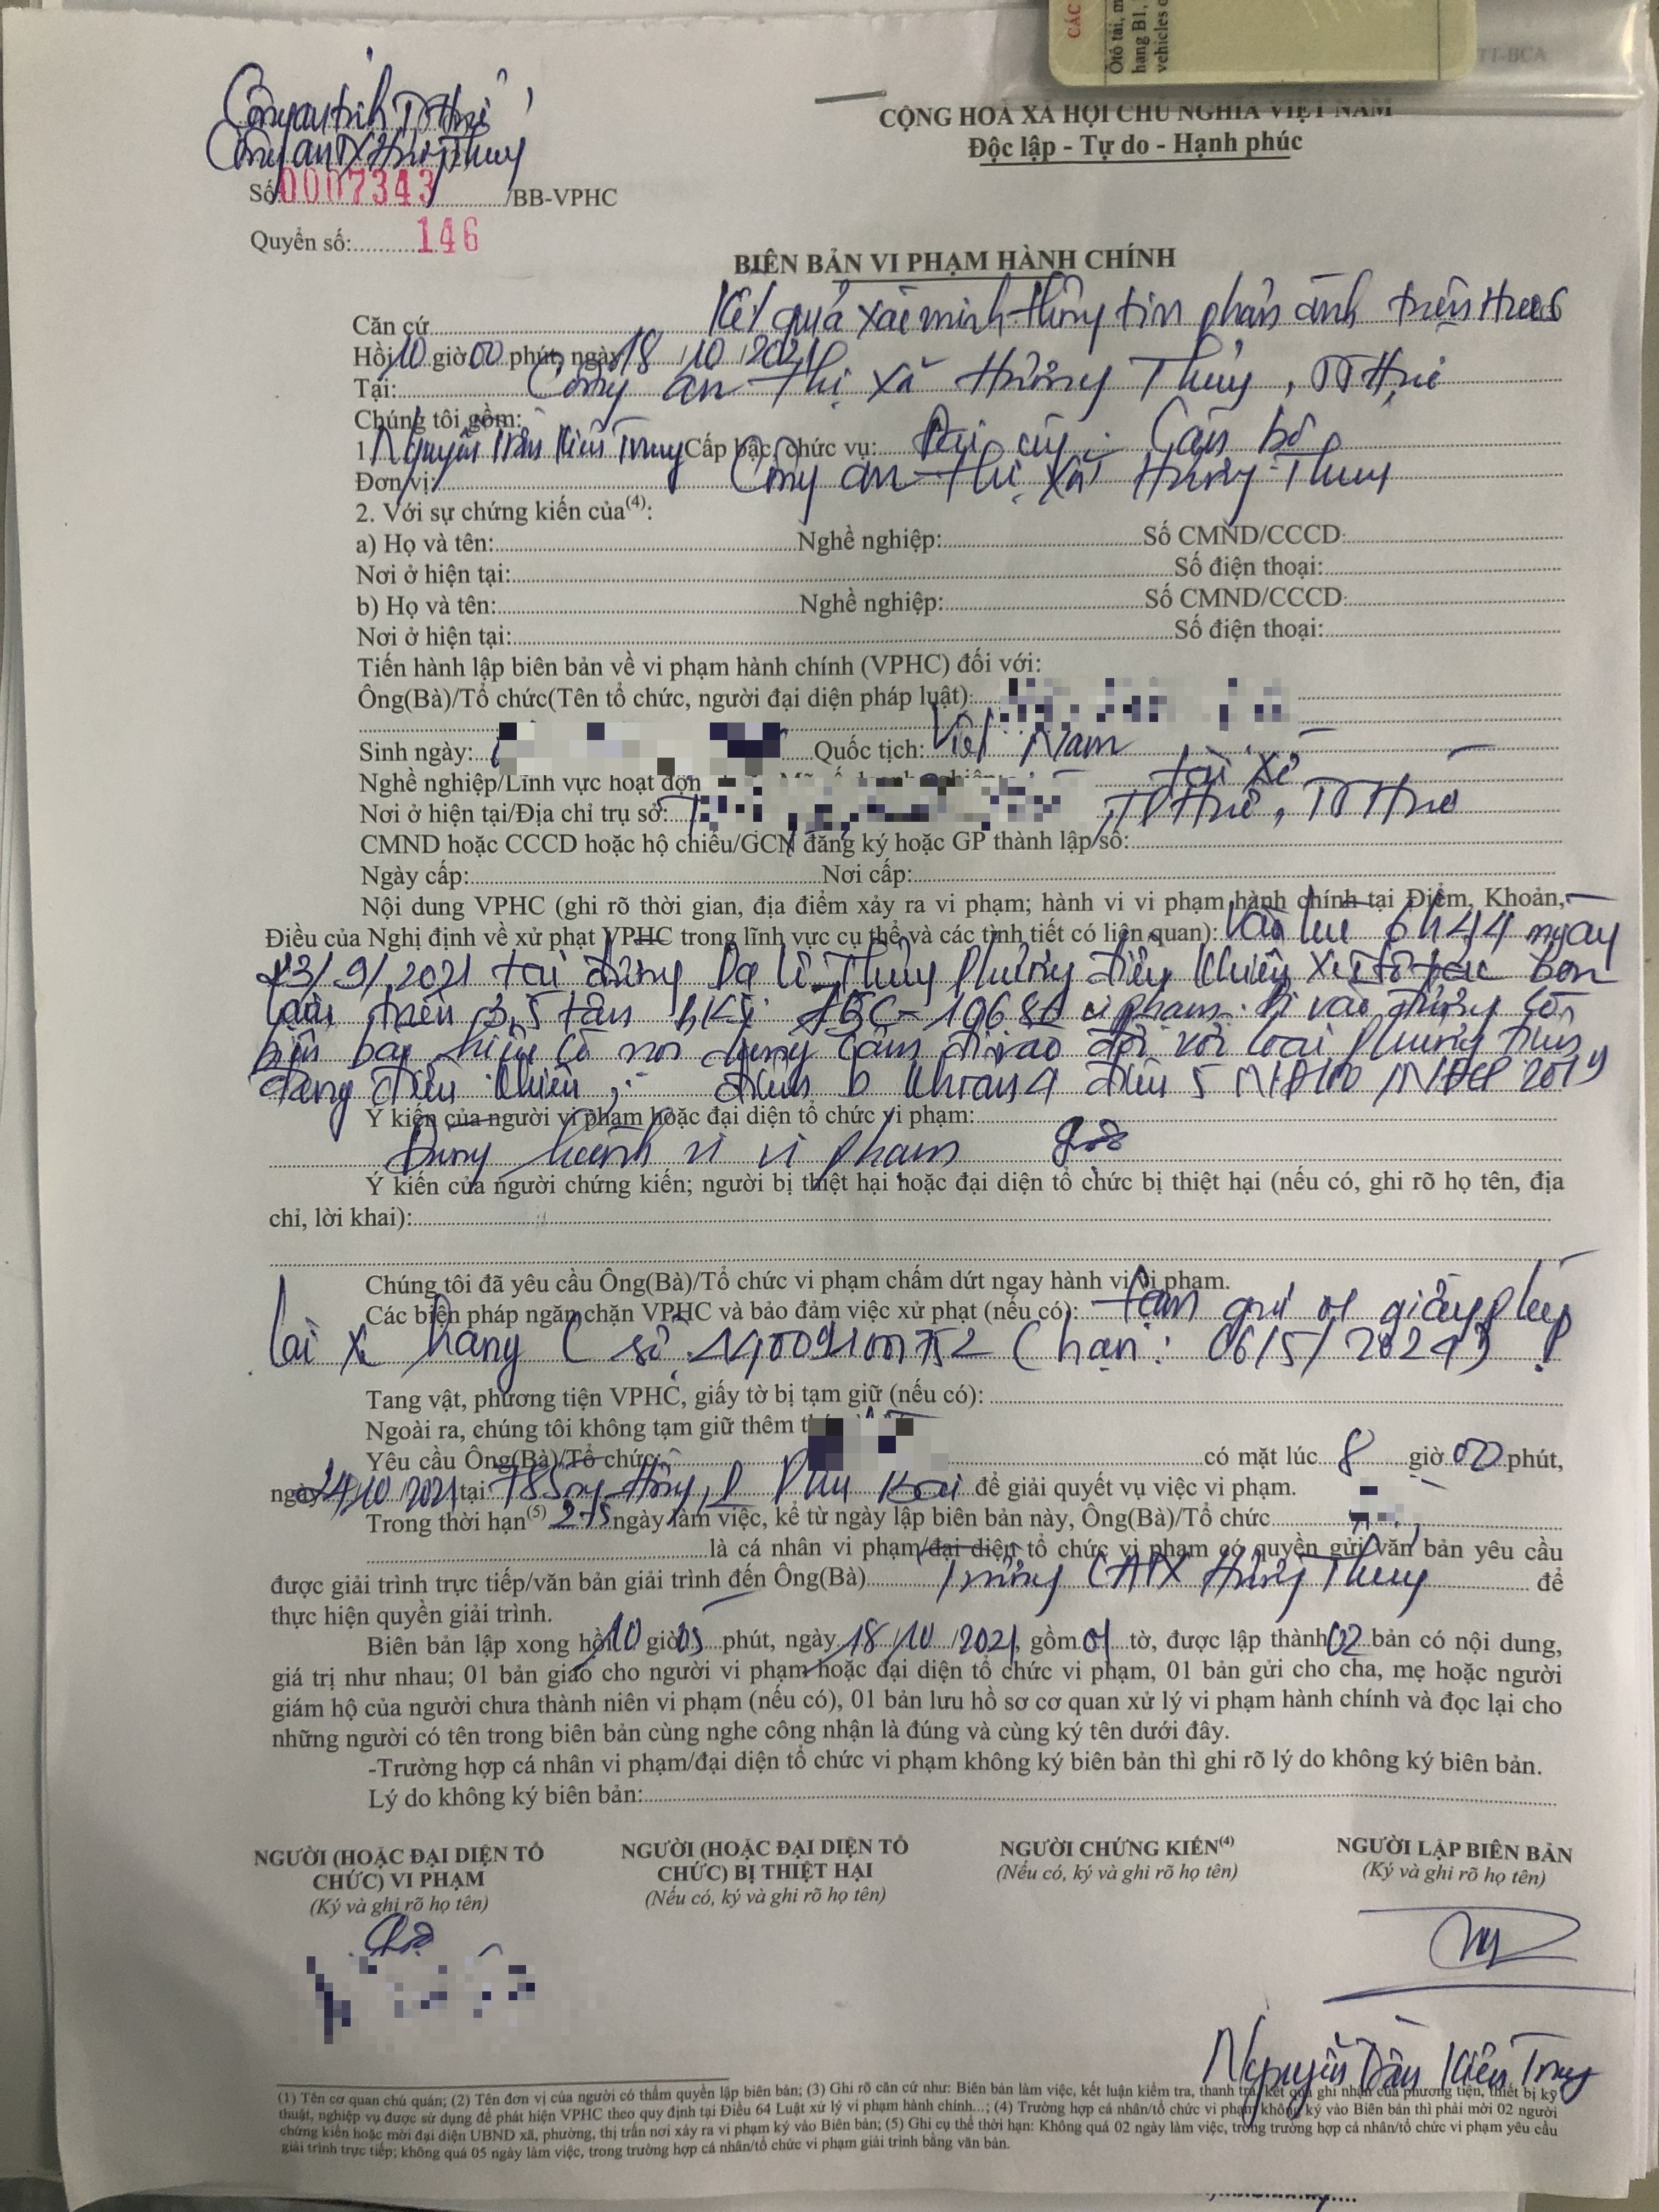 CÁC
Ôtô tải, m
hạng B1,
vehicles
TT-BCA
Công an tỉnh TT Huế
Công an TX Hương Thủy
CỘNG HOÀ XÃ HỘI CHỦ NGHĨA VIỆT NAM
Độc lập - Tự do - Hạnh phúc
Số 0007343 /BB-VPHC
Quyển số: 146
BIÊN BẢN VI PHẠM HÀNH CHÍNH
Căn cứ Kết quả xác minh thông tin phản ánh trên
Hồi 10 giờ 00 phút, ngày 18 / 10 / 2021
Tại: Công an thị xã Hương Thủy, TT Huế
Chúng tôi gồm:
1. Nguyễn Trần Kiên Trung Cấp bậc, chức vụ: Đại úy - Cán bộ
Đơn vị: Công an thị xã Hương Thủy
2. Với sự chứng kiến của(4):
a) Họ và tên: Nghề nghiệp: Số CMND/CCCD:
Nơi ở hiện tại: Số điện thoại:
b) Họ và tên: Nghề nghiệp: Số CMND/CCCD:
Nơi ở hiện tại: Số điện thoại:
Tiến hành lập biên bản về vi phạm hành chính (VPHC) đối với:
Ông(Bà)/Tổ chức(Tên tổ chức, người đại diện pháp luật):
Sinh ngày: Quốc tịch: Việt Nam
Nghề nghiệp/Lĩnh vực hoạt độn tài xế
Nơi ở hiện tại/Địa chỉ trụ sở: , TP Huế, TT Huế
CMND hoặc CCCD hoặc hộ chiếu/GCN đăng ký hoặc GP thành lập số:
Ngày cấp: Nơi cấp:
Nội dung VPHC (ghi rõ thời gian, địa điểm xảy ra vi phạm; hành vi vi phạm hành chính tại Điểm, Khoản,
Điều của Nghị định về xử phạt VPHC trong lĩnh vực cụ thể và các tình tiết có liên quan): Vào lúc 6h44 ngày
23/9/2021 tại đường Dạ Lê - Thủy Phương điều khiển xe ôtô
trên 3,5 tấn BKS 75C- vi phạm: Đi vào đường có
biển báo hiệu có nội dung cấm đi vào đối với loại phương tiện
đang điều khiển; điểm b khoản 4 điều 5 NĐ100/NĐCP 2019
Ý kiến của người vi phạm hoặc đại diện tổ chức vi phạm:
Đúng hành vi vi phạm
Ý kiến của người chứng kiến; người bị thiệt hại hoặc đại diện tổ chức bị thiệt hại (nếu có, ghi rõ họ tên, địa
chỉ, lời khai):
Chúng tôi đã yêu cầu Ông(Bà)/Tổ chức vi phạm chấm dứt ngay hành vi vi phạm.
Các biện pháp ngăn chặn VPHC và bảo đảm việc xử phạt (nếu có): tạm giữ 01 giấy phép
lái xe hạng C số (hạn: 06/5/2024)
Tang vật, phương tiện VPHC, giấy tờ bị tạm giữ (nếu có):
Ngoài ra, chúng tôi không tạm giữ thêm
Yêu cầu Ông(Bà)/Tổ chức: có mặt lúc 8 giờ 00 phút,
ngày 24/10/2021 tại Sóng Hồng, P Phú Bài để giải quyết vụ việc vi phạm.
Trong thời hạn(5) 2-5 ngày làm việc, kể từ ngày lập biên bản này, Ông(Bà)/Tổ chức
là cá nhân vi phạm/đại diện tổ chức vi phạm có quyền gửi văn bản yêu cầu
được giải trình trực tiếp/văn bản giải trình đến Ông(Bà) Trưởng CATX Hương Thủy để
thực hiện quyền giải trình.
Biên bản lập xong hồi 10 giờ 05 phút, ngày 18/10/2021, gồm 01 tờ, được lập thành 02 bản có nội dung,
giá trị như nhau; 01 bản giao cho người vi phạm hoặc đại diện tổ chức vi phạm, 01 bản gửi cho cha, mẹ hoặc người
giám hộ của người chưa thành niên vi phạm (nếu có), 01 bản lưu hồ sơ cơ quan xử lý vi phạm hành chính và đọc lại cho
những người có tên trong biên bản cùng nghe công nhận là đúng và cùng ký tên dưới đây.
-Trường hợp cá nhân vi phạm/đại diện tổ chức vi phạm không ký biên bản thì ghi rõ lý do không ký biên bản.
Lý do không ký biên bản:
NGƯỜI (HOẶC ĐẠI DIỆN TỔ
CHỨC) VI PHẠM
(Ký và ghi rõ họ tên)
NGƯỜI (HOẶC ĐẠI DIỆN TỔ
CHỨC) BỊ THIỆT HẠI
(Nếu có, ký và ghi rõ họ tên)
NGƯỜI CHỨNG KIẾN(4)
(Nếu có, ký và ghi rõ họ tên)
NGƯỜI LẬP BIÊN BẢN
(Ký và ghi rõ họ tên)
Nguyễn Trần Kiên Trung
(1) Tên cơ quan chủ quản; (2) Tên đơn vị của người có thẩm quyền lập biên bản; (3) Ghi rõ căn cứ như: Biên bản làm việc, kết luận kiểm tra, thanh tra, kết quả ghi nhận của phương tiện, thiết bị kỹ
thuật, nghiệp vụ được sử dụng để phát hiện VPHC theo quy định tại Điều 64 Luật xử lý vi phạm hành chính...; (4) Trường hợp cá nhân/tổ chức vi phạm không ký vào Biên bản thì phải mời 02 người
chứng kiến hoặc mời đại diện UBND xã, phường, thị trấn nơi xảy ra vi phạm ký vào Biên bản; (5) Ghi cụ thể thời hạn: Không quá 02 ngày làm việc, trong trường hợp cá nhân/tổ chức vi phạm yêu cầu
giải trình trực tiếp; không quá 05 ngày làm việc, trong trường hợp cá nhân/tổ chức vi phạm giải trình bằng văn bản.